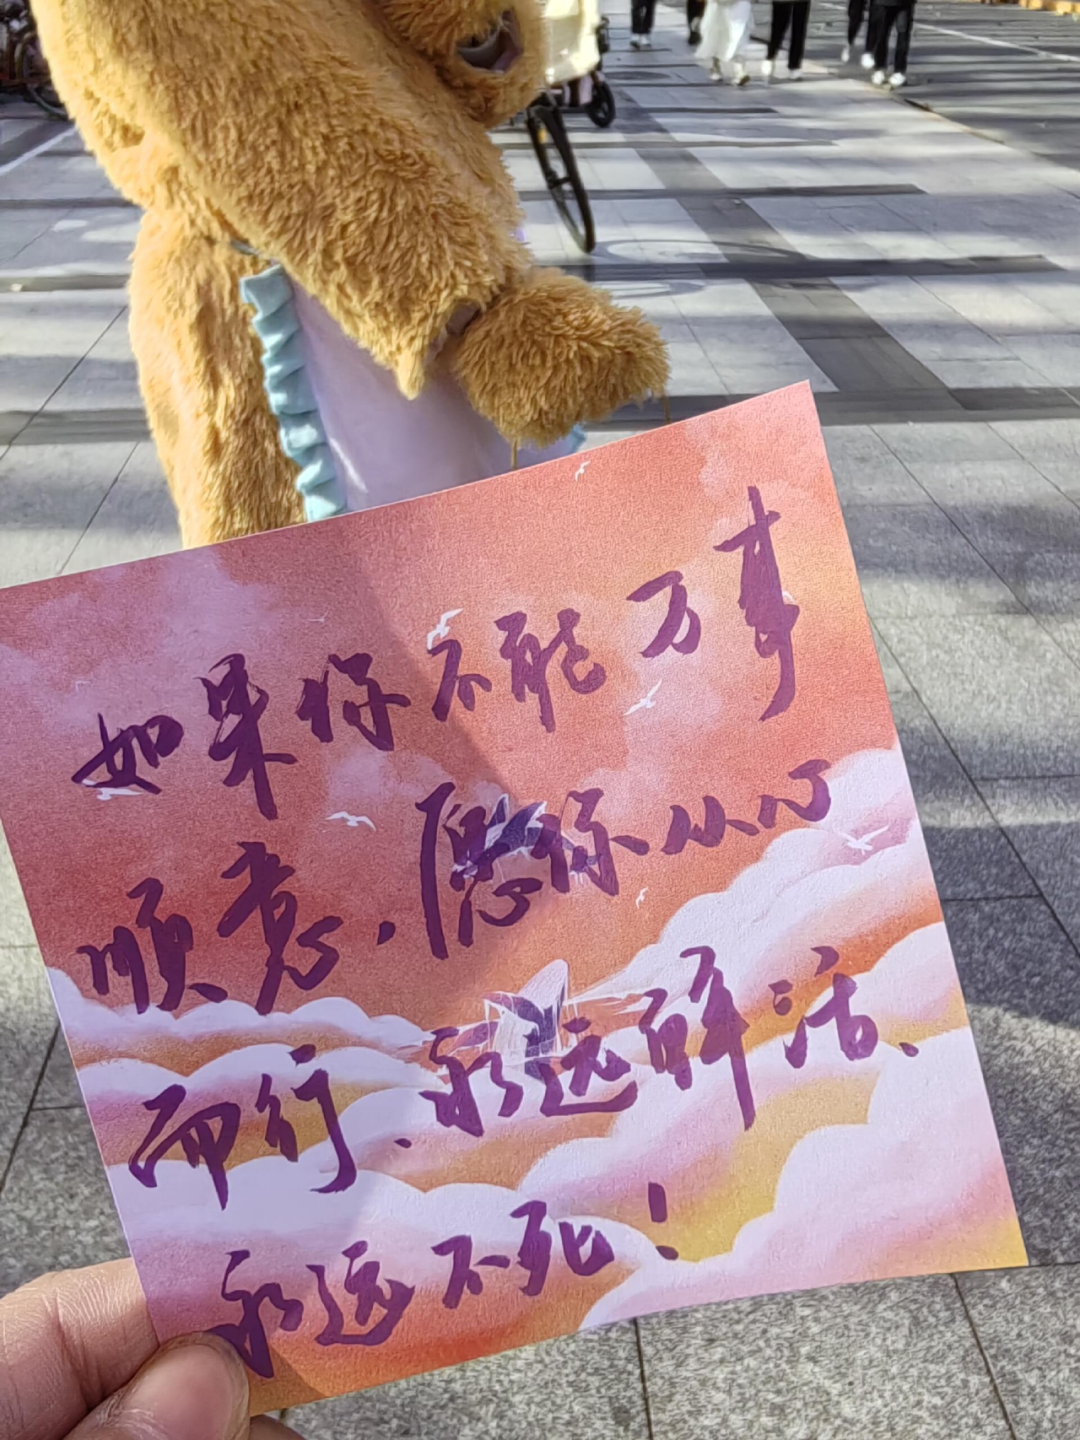 如果你不能万事
顺意,愿你从心
而行、永远鲜活、
永远不死!